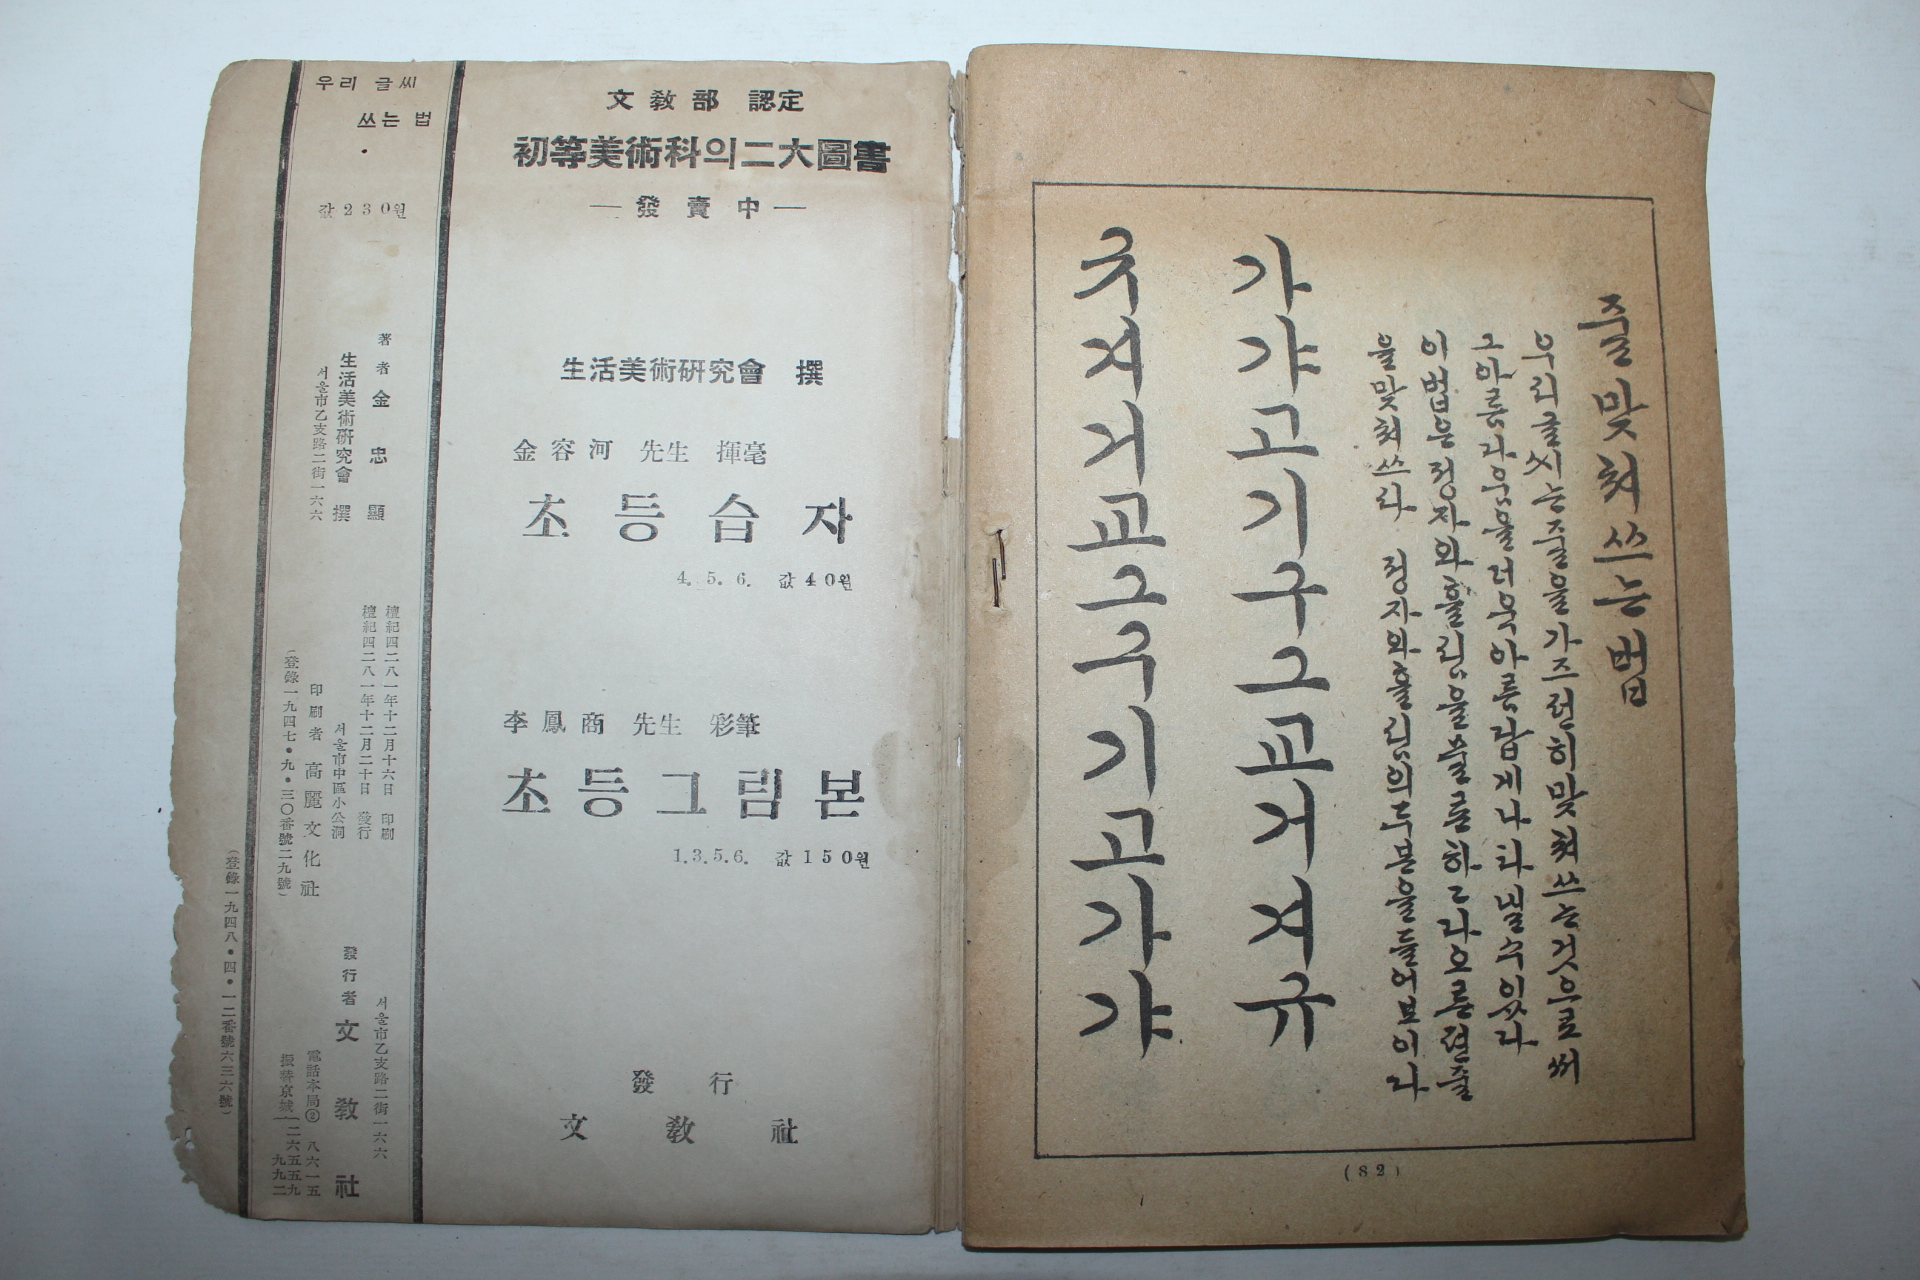 우리 글씨
쓰는 법
값 230원
著者 金忠顯
生活美術硏究會 撰
서울市乙支路二街一六六
檀紀四二八一年十二月十六日 印刷
檀紀四二八一年十二月二十日 發行
서울市中區小公洞
印刷者 高麗文化社
(登錄一九四七・九・三〇番號二九號)
서울市乙支路二街一六六
發行者 文敎社
電話本局② 八六一五
振替京城
(登錄一九四八・四・一二番號六三六號)
文敎部 認定
初等美術科의二大圖書
― 發賣中 ―
生活美術硏究會 撰
金容河 先生 揮毫
초등습자
4. 5. 6. 값40원
李鳳商 先生 彩筆
초등그림본
1. 3. 5. 6. 값150원
發行
文敎社
줄맞쳐쓰는법
우리글씨는줄을가즈런히맞쳐쓰는것으로써
그아름다움을더욱아름답게나타낼수있다
이법은정자와흘림을물론하고라오른편줄
을맞쳐쓰라 정자와흘림의두본을들어보이다
가갸고기구그교거겨규
규겨거교그구기고가갸
(82)